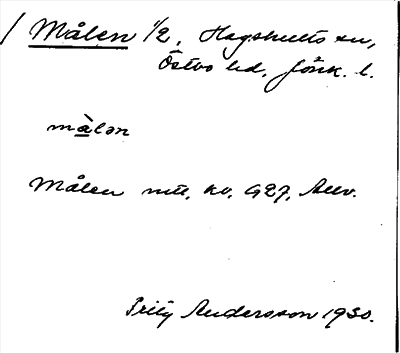 / Målen 1/2, Hagshults sn,
Östbo hd, Jönk. l.
målən
Målen mtl, kv, G27, Allv.
Fritz Andersson 1930.